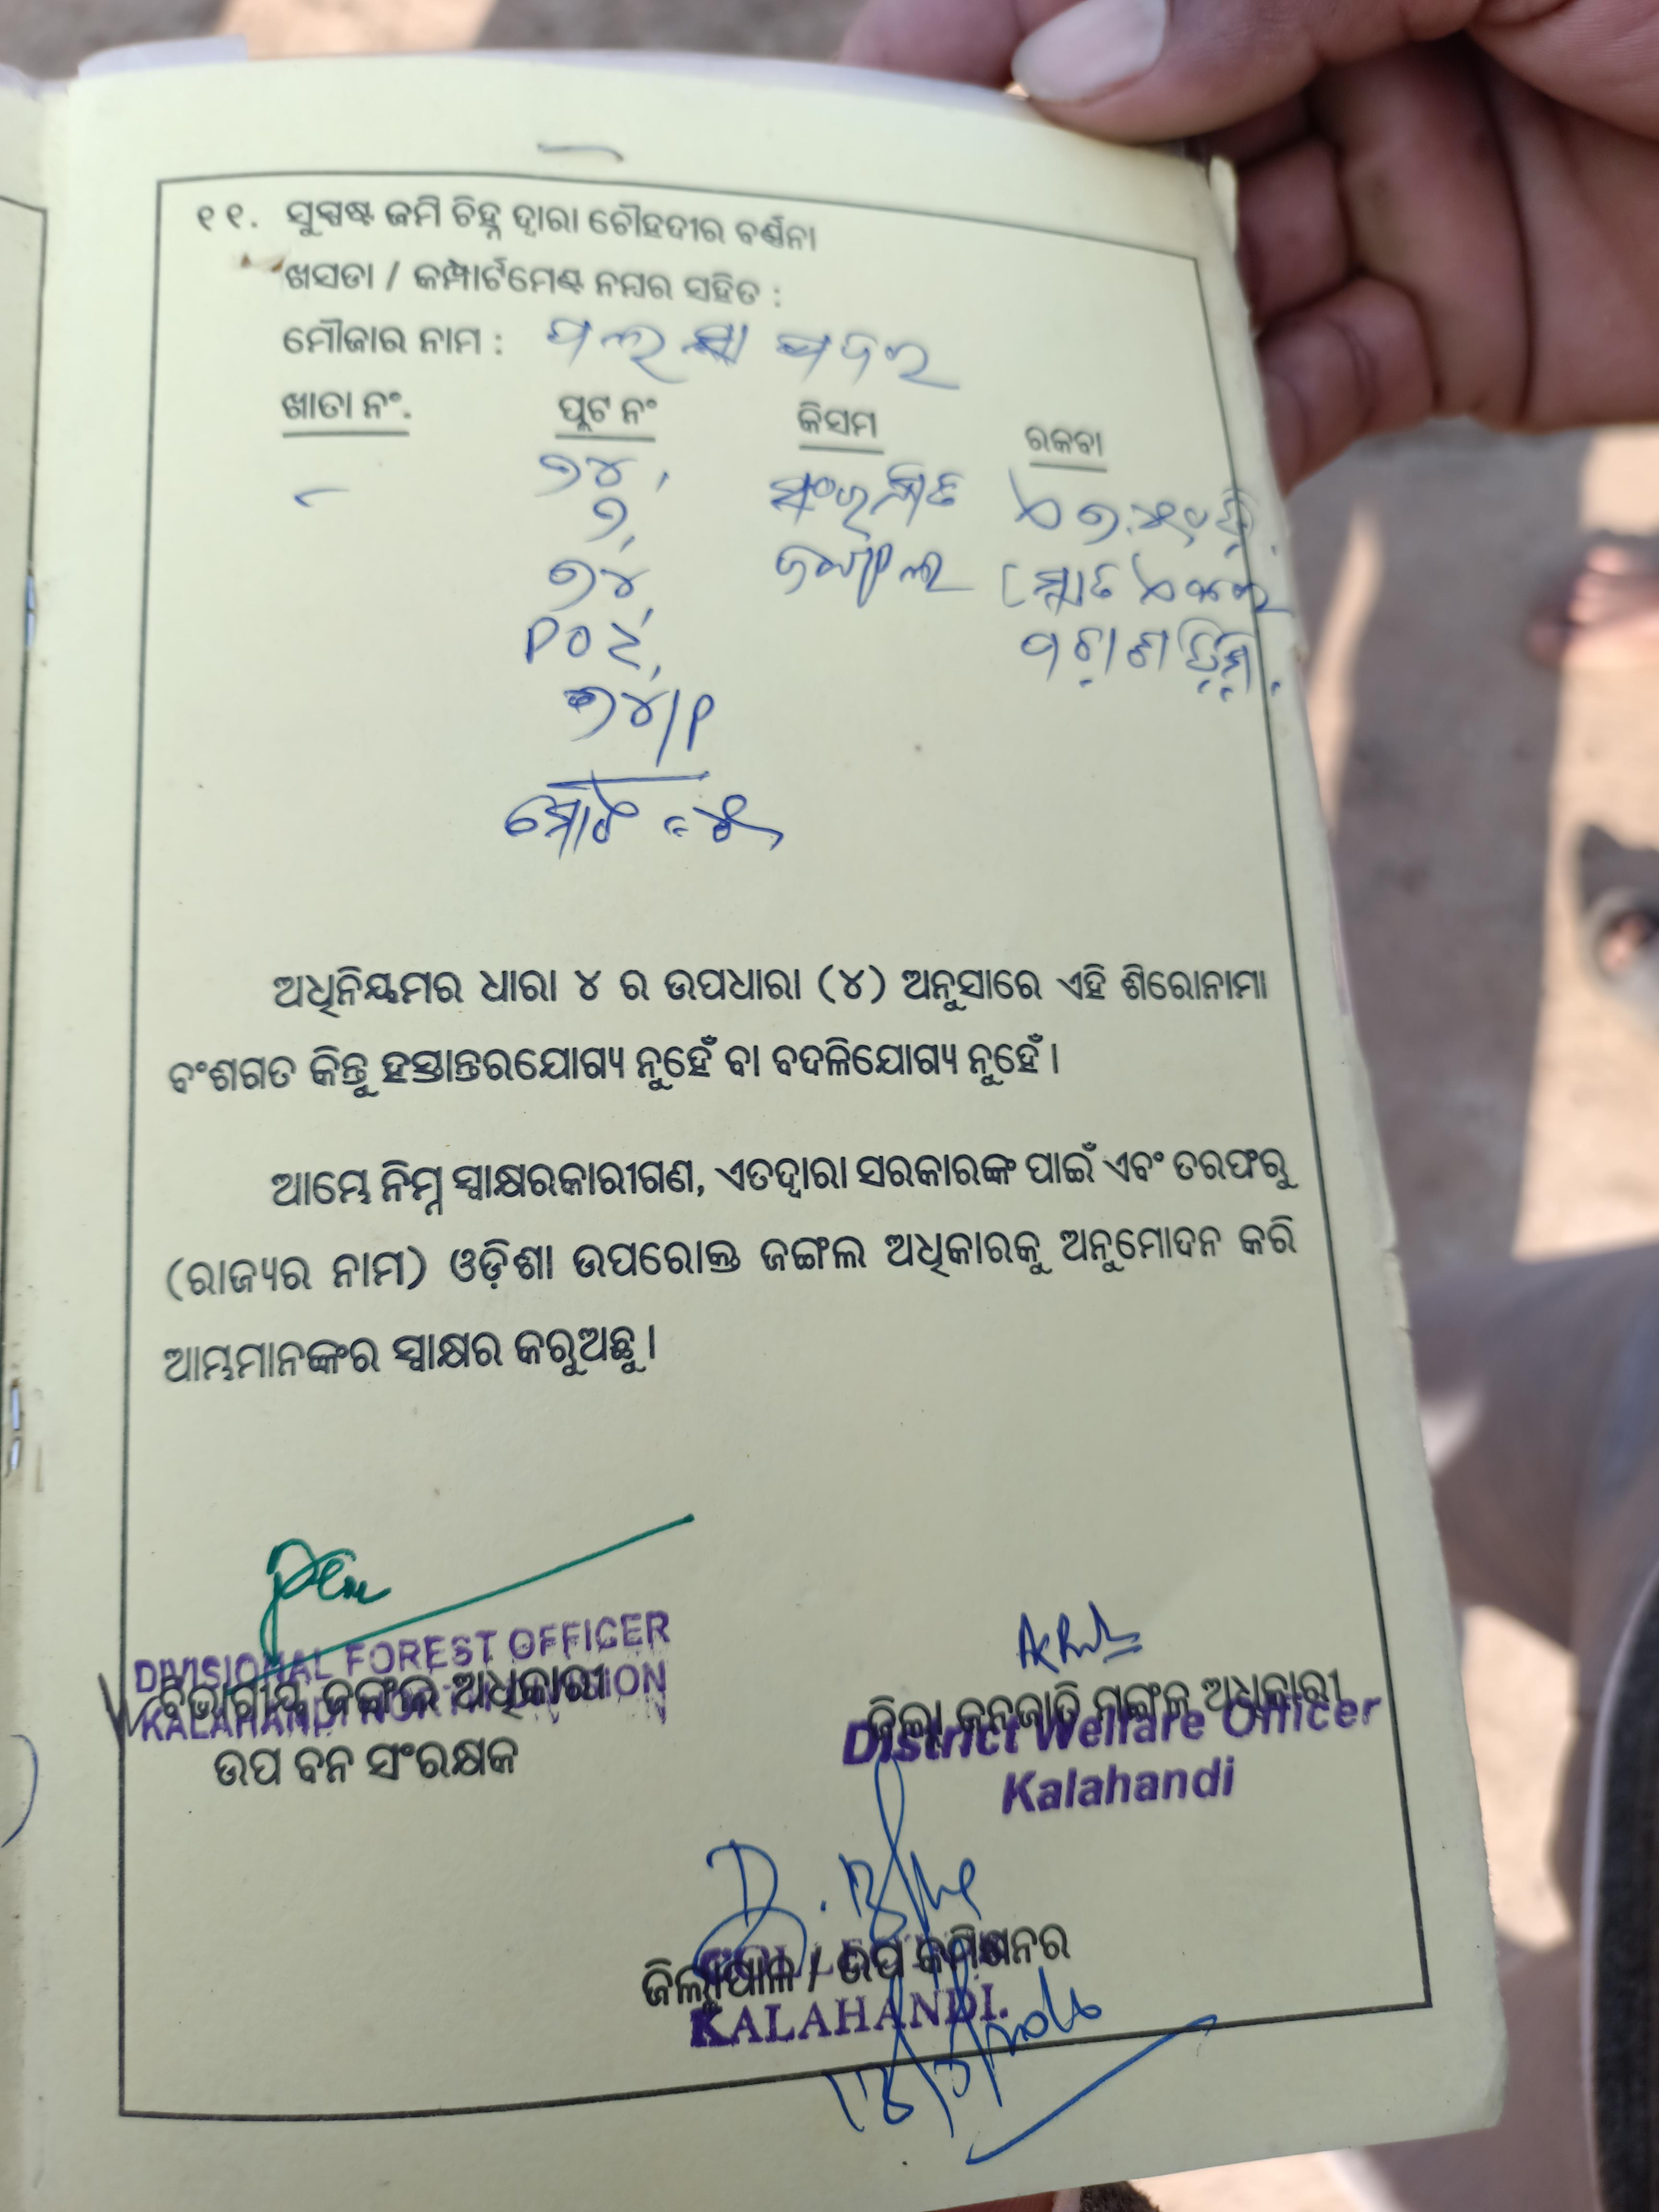 ୧୧. ସୁସ୍ପଷ୍ଟ ଜମି ଚିହ୍ନ ଦ୍ୱାରା ଚୌହଦୀର ବର୍ଣ୍ଣନା
ଖସଡା / କମ୍ପାର୍ଟମେଣ୍ଟ ନମ୍ବର ସହିତ :
ମୌଜାର ନାମ : ପଦର
ଖାତା ନଂ. ପ୍ଲଟ ନଂ କିସମ ରକବା
୭୪, ସଂରକ୍ଷିତ
୨,
୭୪, ଜଙ୍ଗଲ
୭୪/P
ମୋଟ
ଅଧିନିୟମର ଧାରା ୪ ର ଉପଧାରା (୪) ଅନୁସାରେ ଏହି ଶିରୋନାମା
ବଂଶଗତ କିନ୍ତୁ ହସ୍ତାନ୍ତରଯୋଗ୍ୟ ନୁହେଁ ବା ବଦଳିଯୋଗ୍ୟ ନୁହେଁ ।
ଆମ୍ଭେ ନିମ୍ନ ସ୍ୱାକ୍ଷରକାରୀଗଣ, ଏତଦ୍ୱାରା ସରକାରଙ୍କ ପାଇଁ ଏବଂ ତରଫରୁ
(ରାଜ୍ୟର ନାମ) ଓଡ଼ିଶା ଉପରୋକ୍ତ ଜଙ୍ଗଲ ଅଧିକାରକୁ ଅନୁମୋଦନ କରି
ଆମ୍ଭମାନଙ୍କର ସ୍ୱାକ୍ଷର କରୁଅଛୁ ।
DIVISIONAL FOREST OFFICER
ବିଭାଗୀୟ ଜଙ୍ଗଲ ଅଧିକାରୀ
KALAHANDI NORTH DIVISION
ଉପ ବନ ସଂରକ୍ଷକ
ଜିଲ୍ଲା ଜନଜାତି ମଙ୍ଗଳ ଅଧିକାରୀ
District Welfare Officer
Kalahandi
ଜିଲ୍ଲାପାଳ / ଉପ କମିଶନର
KALAHANDI.